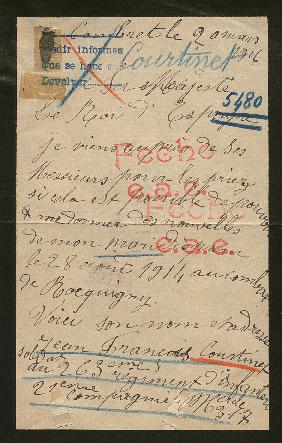 Combret le 9 mars
1916
Pedir informes
Que se hace
Devolver
Courtinet
Sa Majesté
5480
Le Roi d'Espagne
Je viens auprès de vos
Messieurs pour les priez
si cela est possible de pouvoir
me donner des nouvelles
de mon mari disparu
le 28 août 1914 au combat
de Rocquigny.
Voici son nom et adresse
Jean François Courtinet
soldat au 263 eme régiment d'infanterie
21 eme Compagnie Mle
Hecho
e.a.e.
Hecho
e.a.e.